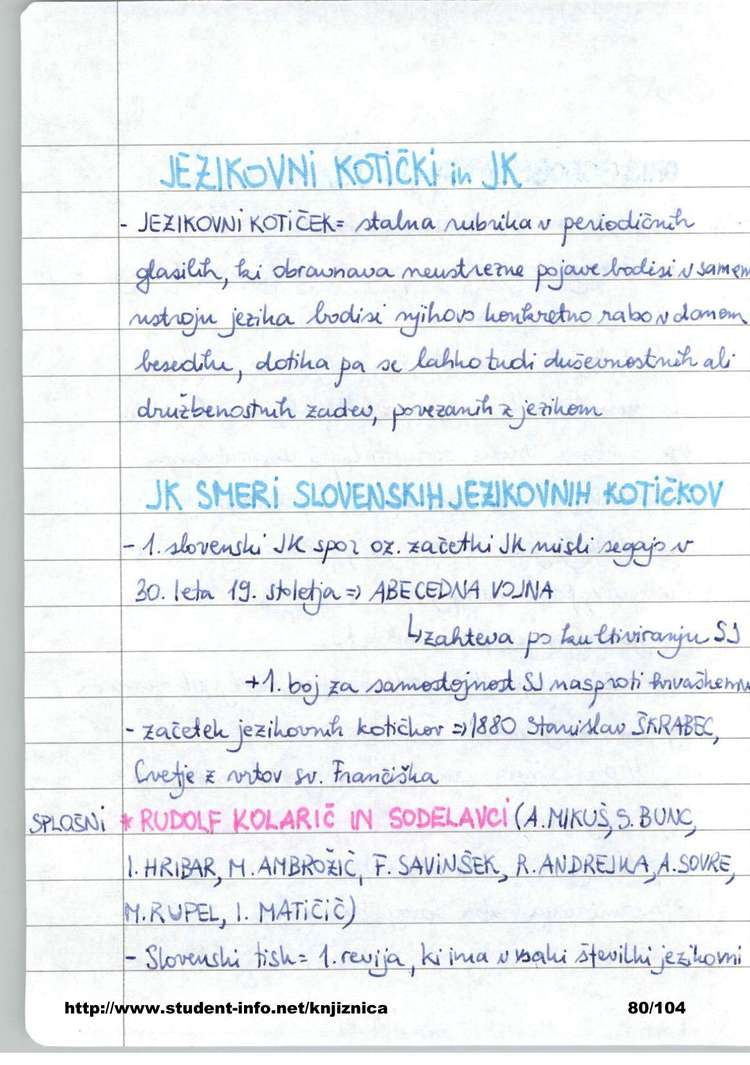 JEZIKOVNI KOTIČKI in JK
- JEZIKOVNI KOTIČEK= stalna rubrika v periodičnih
glasilih, ki obravnava neustrezne pojave bodisi v samem
ustroju jezika bodisi njihovo konkretno rabo v danem
besedilu, dotika pa se lahko tudi duševnostnih ali
družbenostnih zadev, povezanih z jezikom
JK SMERI SLOVENSKIH JEZIKOVNIH KOTIČKOV
- 1. slovenski JK spor oz. začetki JK misli segajo v
30. leta 19. stoletja => ABECEDNA VOJNA
↳ zahteva po kultiviranju SJ
+1. boj za samostojnost SJ nasproti hrvaškemu
- začetek jezikovnih kotičkov => 1880 Stanislav ŠKRABEC,
Cvetje z vrtov sv. Frančiška
SPLOŠNI * RUDOLF KOLARIČ IN SODELAVCI (A. MIKUŠ, S. BUNC,
I. HRIBAR, M. AMBROŽIČ, F. SAVINŠEK, R. ANDREJKA, A. SOVRE,
M. RUPEL, I. MATIČIČ)
- Slovenski tisk= 1. revija, ki ima v vsaki številki jezikovni
http://www.student-info.net/knjiznica 80/104